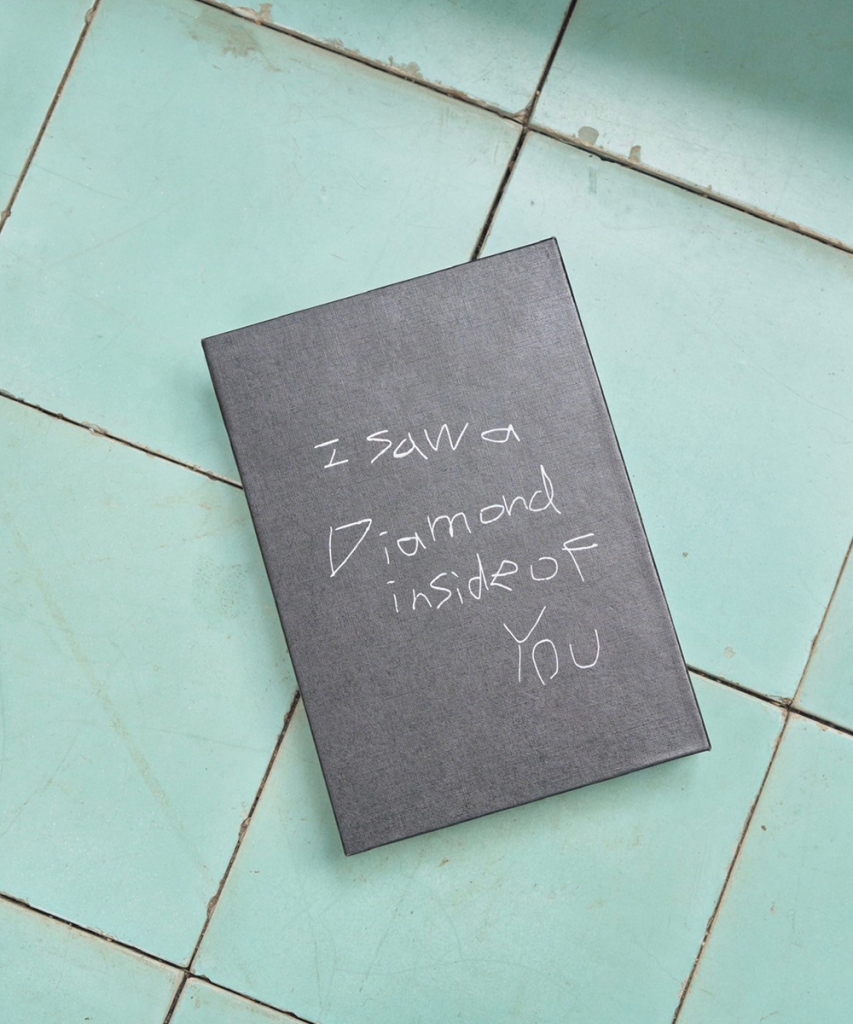 I saw a
Diamond
inside of
You